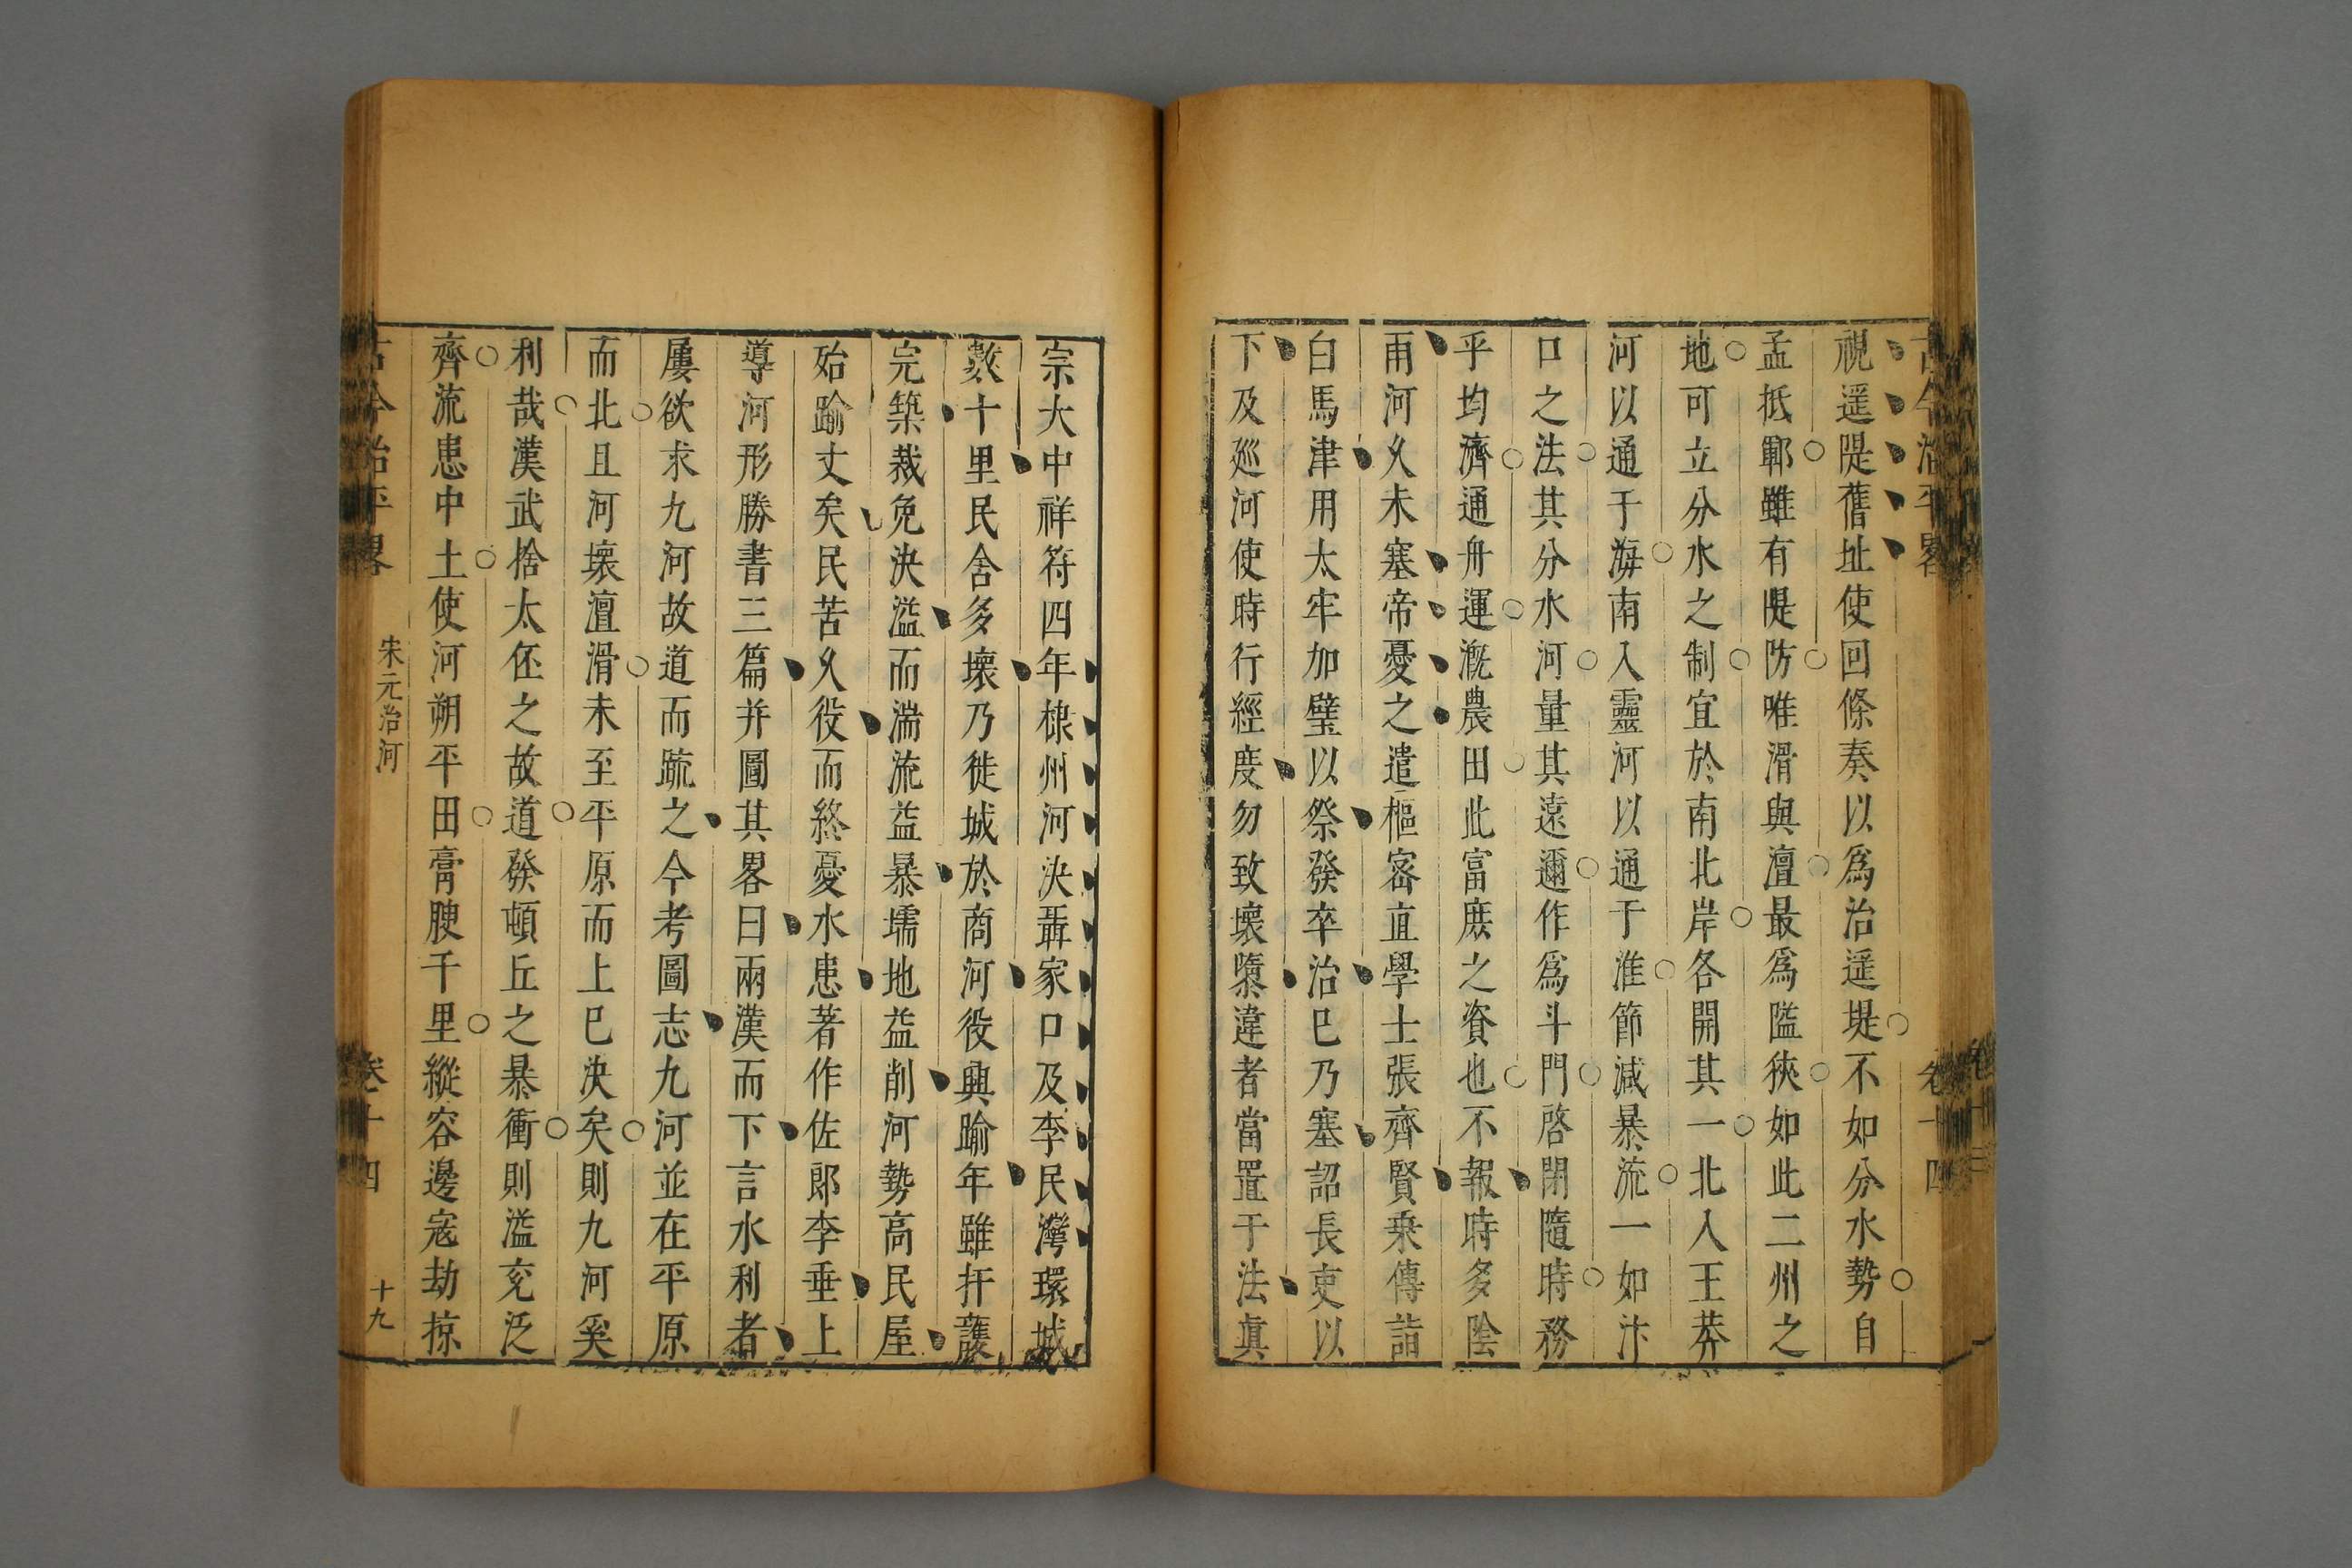 古今治平畧
卷十四
視遥隄舊址使回條奏以爲治遥堤不如分水勢自
孟抵鄆雖有隄防唯滑與澶最爲隘狹如此二州之
地可立分水之制宜於南北岸各開其一北入王莽
河以通于海南入靈河以通于淮節減暴流一如汴
口之法其分水河量其遠邇作爲斗門啓閉隨時務
乎均濟通舟運漑農田此富庶之資也不報時多陰
雨河乆未塞帝憂之遣樞密直學士張齊賢乗傳詣
白馬津用太牢加璧以祭發卒治巳乃塞詔長吏以
下及廵河使時行經度勿致壞隳違者當置于法眞
宗大中祥符四年棣州河決聶家口及李民灣環城
數十里民舍多壞乃徙城於商河役興踰年雖扞護
完築裁免決溢而湍流益暴壖地益削河勢高民屋
殆踰丈矣民苦乆役而終憂水患著作佐郎李垂上
導河形勝書三篇并圖其畧曰兩漢而下言水利者
屢欲求九河故道而疏之今考圖志九河並在平原
而北且河壞澶滑未至平原而上巳決矣則九河奚
利哉漢武捨太伾之故道發頓丘之暴衝則溢兖泛
齊流患中土使河朔平田膏腴千里縱容邊宼劫掠
古今治平畧
宋元治河
卷十四
十九